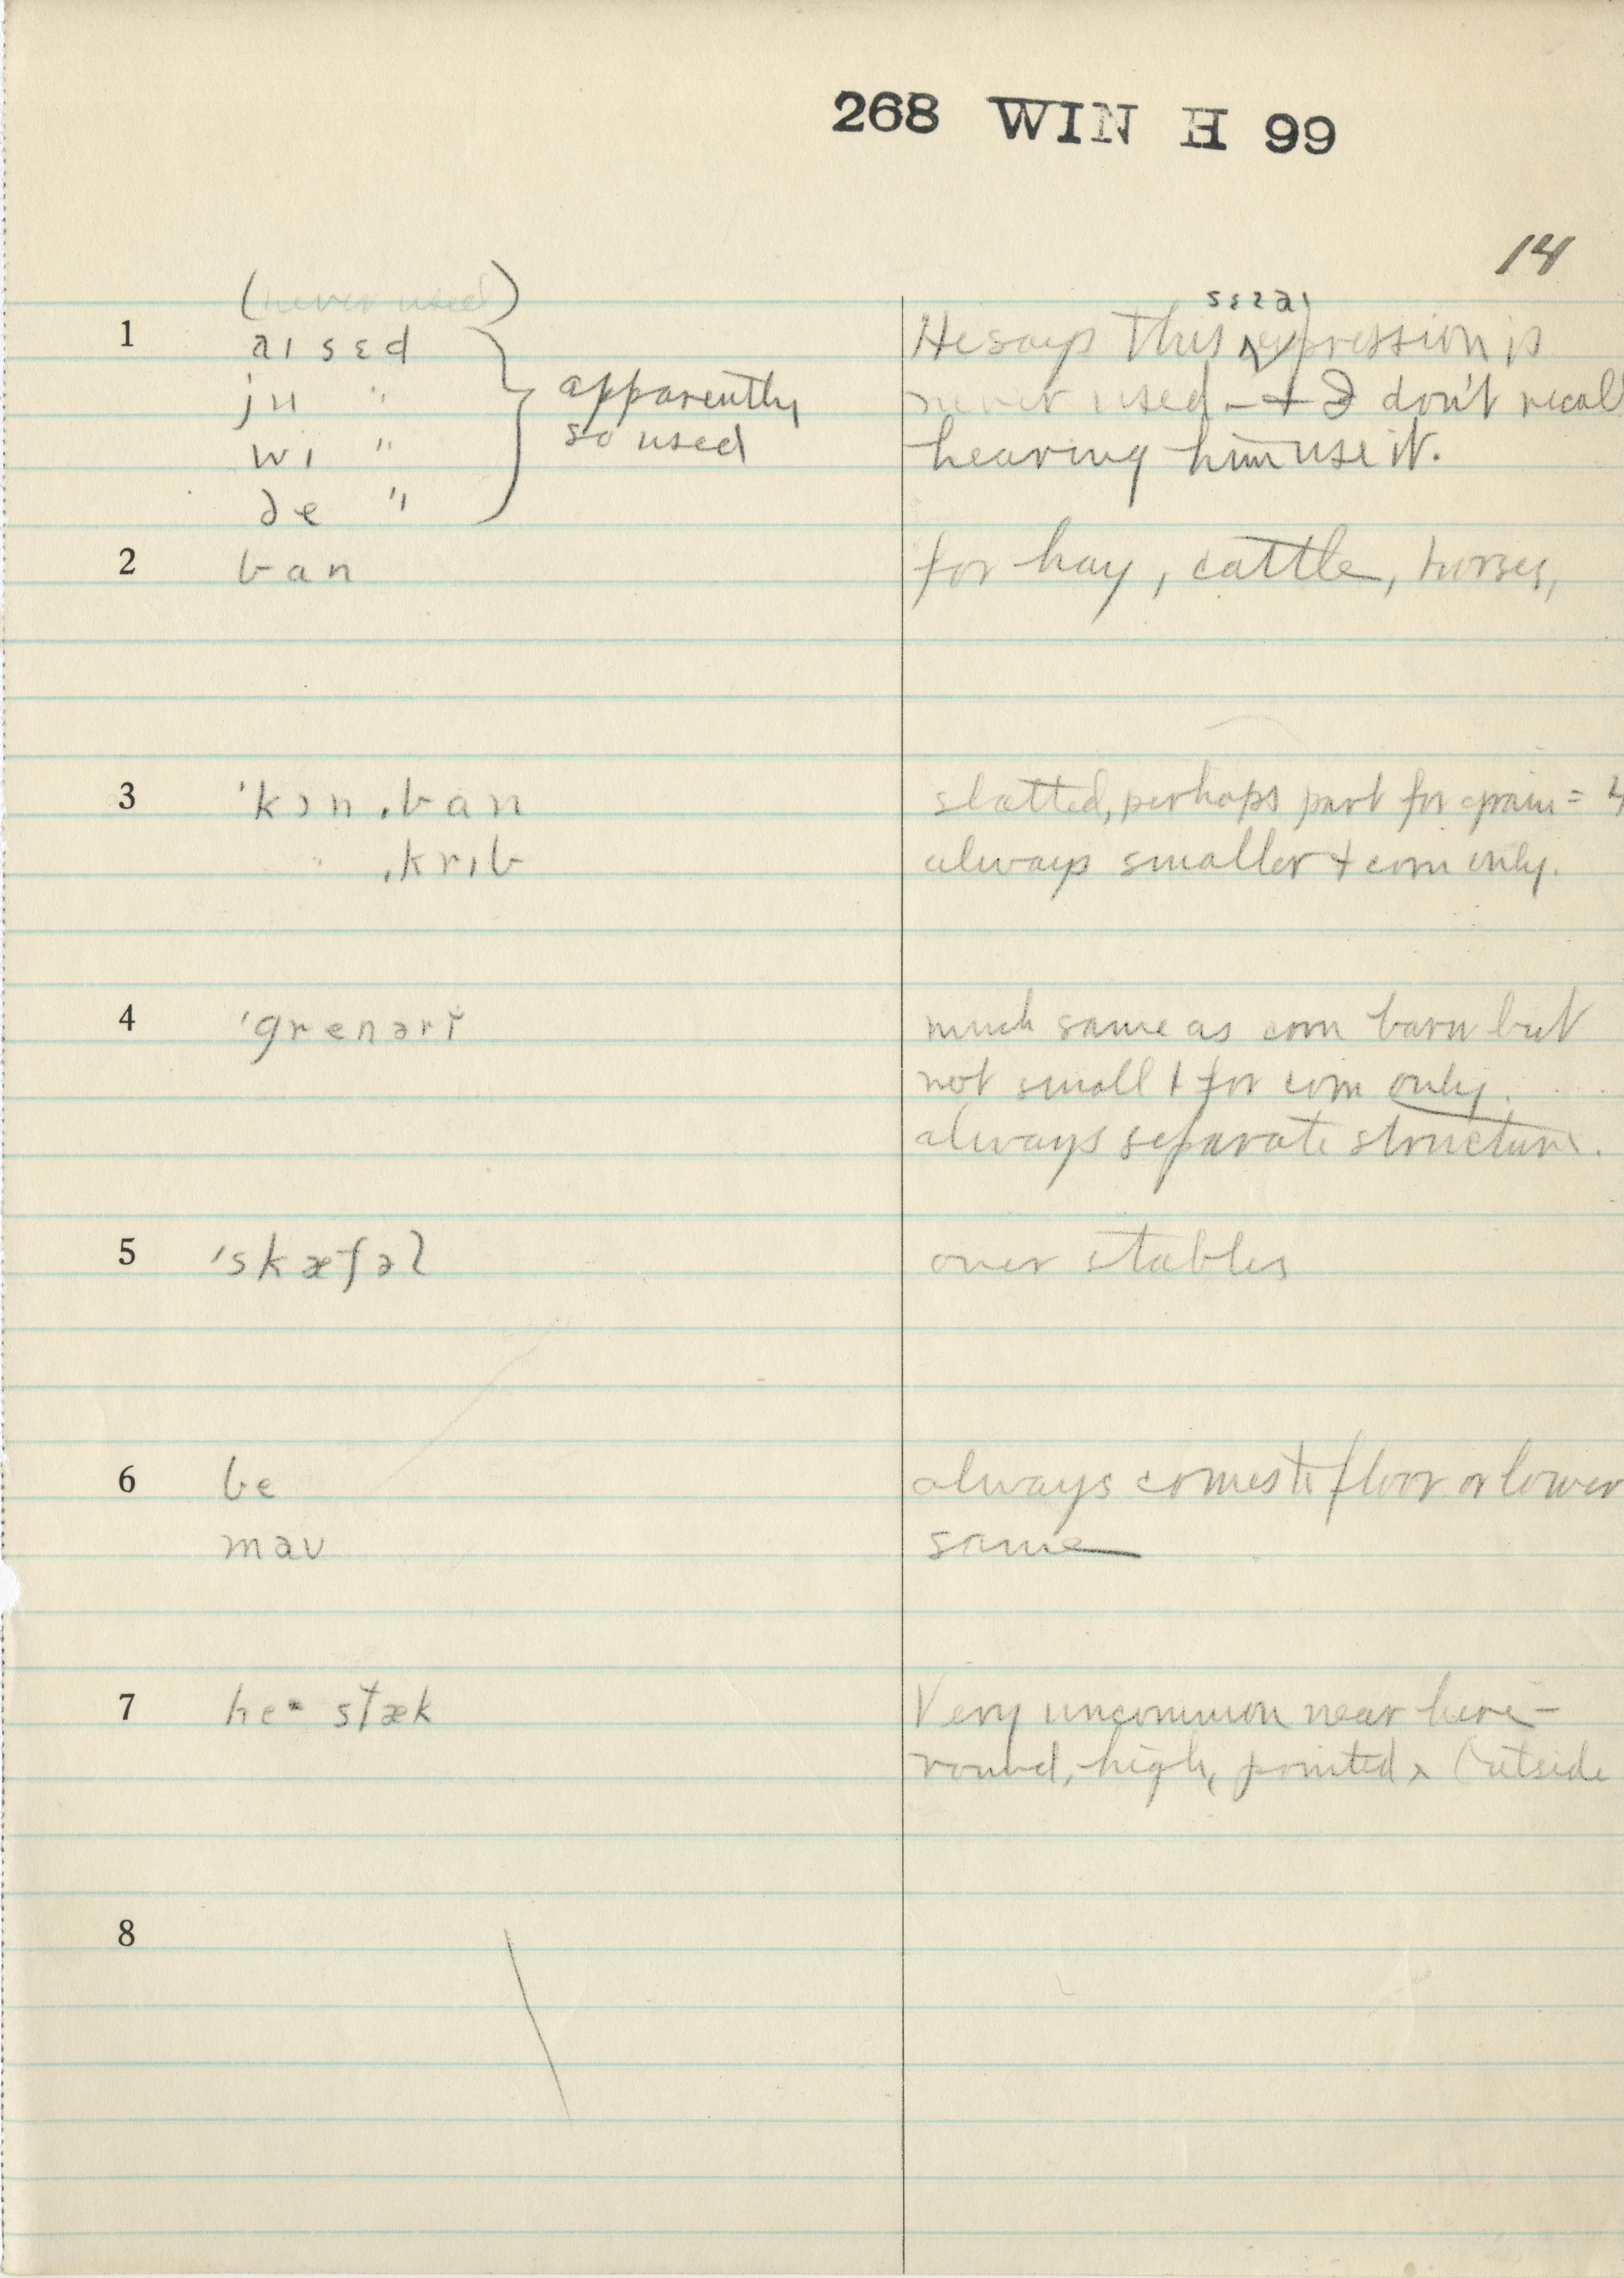 268 WIN H 99
14
(never used)
1 aɪ sɛd He says this ^ sɛz aɪ expression is
ju " apparently never used - + I don't recall
wi " so used hearing him use it.
ðe "
2 ban for hay, cattle, horses,
3 'kɔn ˌban slatted, perhaps part for grain = 4
" ˌkrɪb always smaller + corn only.
4 'grenərĭ much same as corn barn but
not small + for corn only.
always separate structure.
5 'skæfəl over stables
6 be always comes to floor or lower
maʊ same
7 he· stæk Very uncommon near here -
round, high, pointed x (outside
8